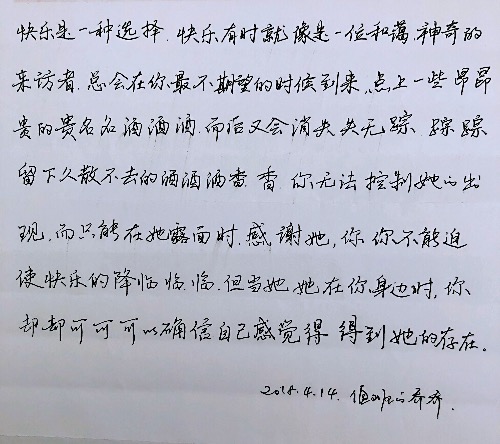 快乐是一种选择.快乐有时就像是一位和蔼,神奇的
来访者.总会在你最不期望的时候到来,点上一些昂昂
贵的贵名名酒酒酒.而后又会消失失无踪.踪踪
留下久散不去的酒酒酒香.香.你无法控制她的出
现,而只能在她露面时.感谢她,你你不能迫
使快乐的降临临.临.但当她她在你身边时,你
却却可可可以确信自己感觉得得到她的存在。
2018.4.14.值班的乔乔.